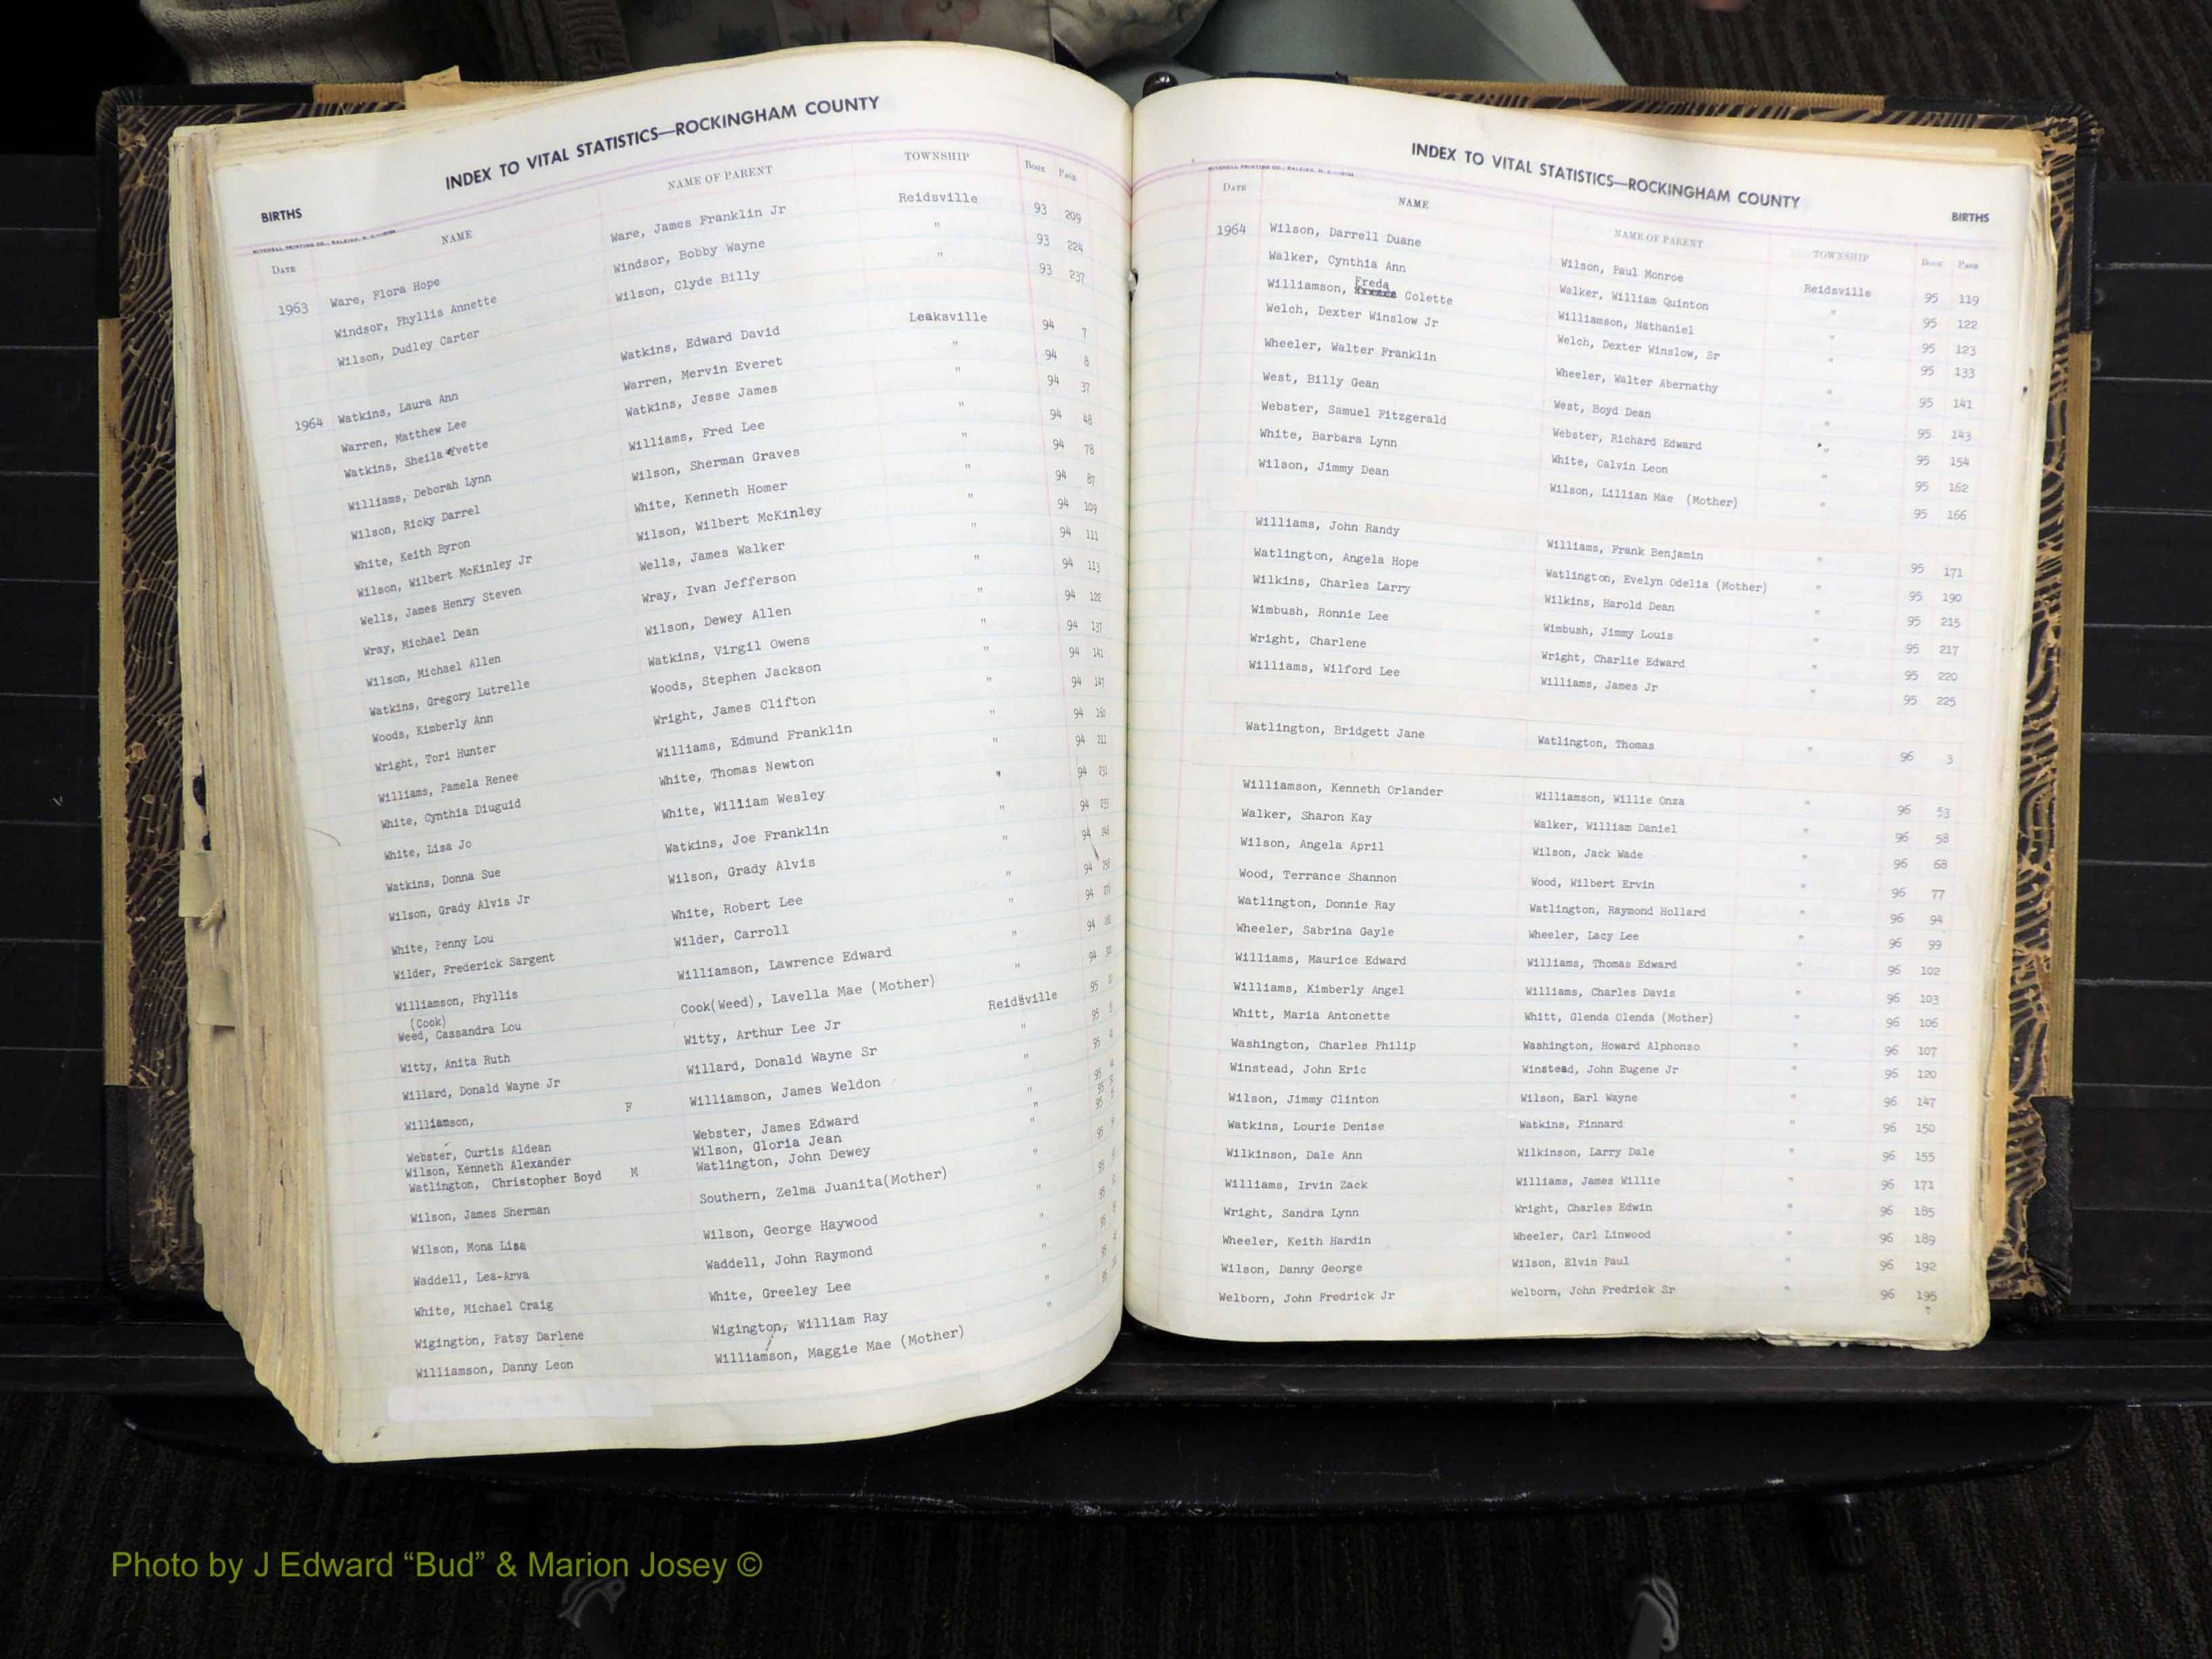 INDEX TO VITAL STATISTICS—ROCKINGHAM COUNTY
BIRTHS
MITCHELL PRINTING CO., RALEIGH, N. C.
DATE NAME NAME OF PARENT TOWNSHIP BOOK PAGE
1963 Ware, Flora Hope Ware, James Franklin Jr Reidsville 93 209
Windsor, Phyllis Annette Windsor, Bobby Wayne " 93 224
Wilson, Dudley Carter Wilson, Clyde Billy " 93 237
1964 Watkins, Laura Ann Watkins, Edward David Leaksville 94 7
Warren, Matthew Lee Warren, Mervin Everet " 94 8
Watkins, Sheila Yvette Watkins, Jesse James " 94 37
Williams, Deborah Lynn Williams, Fred Lee " 94 48
Wilson, Ricky Darrel Wilson, Sherman Graves " 94 78
White, Keith Byron White, Kenneth Homer " 94 87
Wilson, Wilbert McKinley Jr Wilson, Wilbert McKinley " 94 109
Wells, James Henry Steven Wells, James Walker " 94 111
Wray, Michael Dean Wray, Ivan Jefferson " 94 113
Wilson, Michael Allen Wilson, Dewey Allen " 94 122
Watkins, Gregory Lutrelle Watkins, Virgil Owens " 94 137
Woods, Kimberly Ann Woods, Stephen Jackson " 94 141
Wright, Tori Hunter Wright, James Clifton " 94
Williams, Pamela Renee Williams, Edmund Franklin " 94
White, Cynthia Diuguid White, Thomas Newton " 94 211
White, Lisa Jo White, William Wesley " 94
Watkins, Donna Sue Watkins, Joe Franklin " 94
Wilson, Grady Alvis Jr Wilson, Grady Alvis " 94
White, Penny Lou White, Robert Lee " 94
Wilder, Frederick Sargent Wilder, Carroll " 94
Williamson, Phyllis Williamson, Lawrence Edward " 94
(Cook)
Weed, Cassandra Lou Cook(Weed), Lavella Mae (Mother) " 94
Witty, Anita Ruth Witty, Arthur Lee Jr Reidsville 95
Willard, Donald Wayne Jr Willard, Donald Wayne Sr " 95
Williamson, F Williamson, James Weldon " 95
Webster, Curtis Aldean Webster, James Edward " 95
Wilson, Kenneth Alexander Wilson, Gloria Jean " 95
Watlington, Christopher Boyd M Watlington, John Dewey " 95
Wilson, James Sherman Southern, Zelma Juanita(Mother) " 95
Wilson, Mona Lisa Wilson, George Haywood " 95
Waddell, Lea-Arva Waddell, John Raymond " 95
White, Michael Craig White, Greeley Lee " 95
Wigington, Patsy Darlene Wigington, William Ray " 95
Williamson, Danny Leon Williamson, Maggie Mae (Mother) " 95
INDEX TO VITAL STATISTICS—ROCKINGHAM COUNTY
BIRTHS
MITCHELL PRINTING CO., RALEIGH, N. C.
DATE NAME NAME OF PARENT TOWNSHIP BOOK PAGE
1964 Wilson, Darrell Duane Wilson, Paul Monroe Reidsville 95 119
Walker, Cynthia Ann Walker, William Quinton " 95 122
Freda
Williamson, Colette Williamson, Nathaniel " 95 123
Welch, Dexter Winslow Jr Welch, Dexter Winslow, Sr " 95 133
Wheeler, Walter Franklin Wheeler, Walter Abernathy " 95 141
West, Billy Gean West, Boyd Dean " 95 143
Webster, Samuel Fitzgerald Webster, Richard Edward " 95 154
White, Barbara Lynn White, Calvin Leon " 95 162
Wilson, Jimmy Dean Wilson, Lillian Mae (Mother) " 95 166
Williams, John Randy Williams, Frank Benjamin " 95 171
Watlington, Angela Hope Watlington, Evelyn Odelia (Mother) " 95 190
Wilkins, Charles Larry Wilkins, Harold Dean " 95 215
Wimbush, Ronnie Lee Wimbush, Jimmy Louis " 95 217
Wright, Charlene Wright, Charlie Edward " 95 220
Williams, Wilford Lee Williams, James Jr " 95 225
Watlington, Bridgett Jane Watlington, Thomas " 96 3
Williamson, Kenneth Orlander Williamson, Willie Onza " 96 53
Walker, Sharon Kay Walker, William Daniel " 96 58
Wilson, Angela April Wilson, Jack Wade " 96 68
Wood, Terrance Shannon Wood, Wilbert Ervin " 96 77
Watlington, Donnie Ray Watlington, Raymond Hollard " 96 94
Wheeler, Sabrina Gayle Wheeler, Lacy Lee " 96 99
Williams, Maurice Edward Williams, Thomas Edward " 96 102
Williams, Kimberly Angel Williams, Charles Davis " 96 103
Whitt, Maria Antonette Whitt, Glenda Olenda (Mother) " 96 106
Washington, Charles Philip Washington, Howard Alphonso " 96 107
Winstead, John Eric Winstead, John Eugene Jr " 96 120
Wilson, Jimmy Clinton Wilson, Earl Wayne " 96 147
Watkins, Lourie Denise Watkins, Finnard " 96 150
Wilkinson, Dale Ann Wilkinson, Larry Dale " 96 155
Williams, Irvin Zack Williams, James Willie " 96 171
Wright, Sandra Lynn Wright, Charles Edwin " 96 185
Wheeler, Keith Hardin Wheeler, Carl Linwood " 96 189
Wilson, Danny George Wilson, Elvin Paul " 96 192
Welborn, John Fredrick Jr Welborn, John Fredrick Sr " 96 195
Photo by J Edward “Bud” & Marion Josey ©